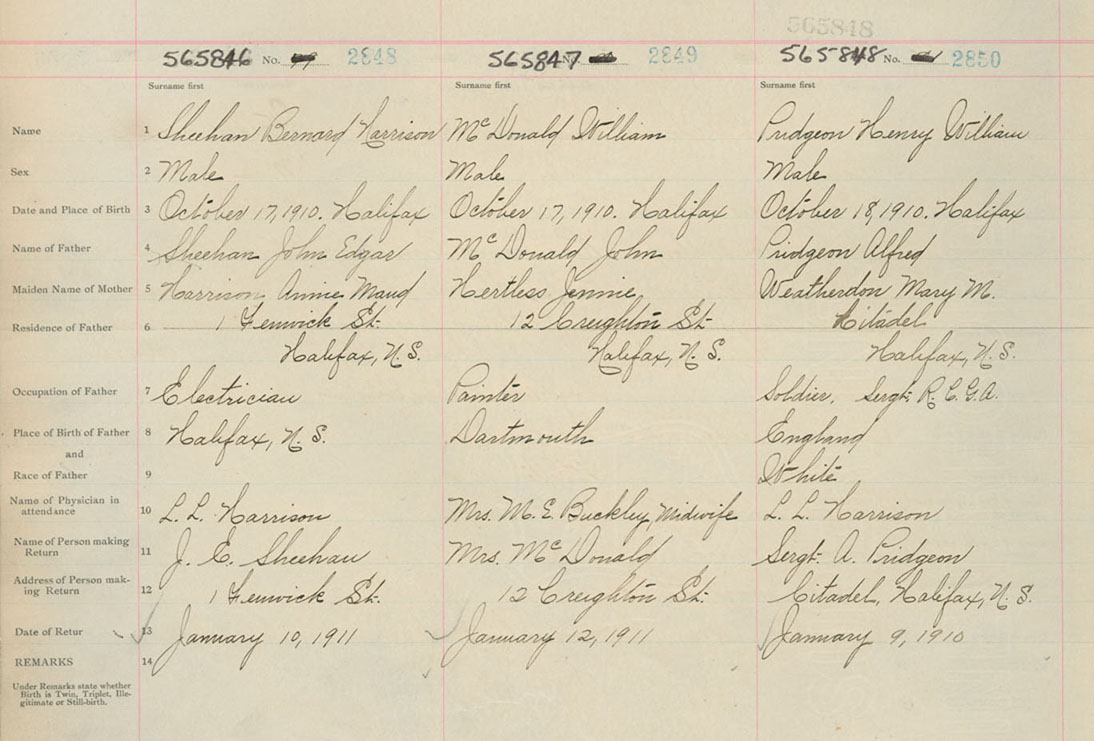 565848
565846 No. 2848 565847 No. 2849 565848 No. 2850
Surname first Surname first Surname first
Name 1 Sheehan Bernard Harrison McDonald William Pridgeon Henry William
Sex 2 Male Male Male
Date and Place of Birth 3 October 17, 1910. Halifax October 17, 1910. Halifax October 18, 1910. Halifax
Name of Father 4 Sheehan John Edgar McDonald John Pridgeon Alfred
Maiden Name of Mother 5 Harrison, Annie Maud Hertless Jennie Weatherdon Mary M.
Residence of Father 6 1 Fenwick St. 12 Creighton St. Citadel
Halifax, N.S. Halifax, N.S. Halifax, N.S.
Occupation of Father 7 Electrician Painter Soldier, Sergt. R.C.G.A.
Place of Birth of Father 8 Halifax, N.S. Dartmouth England
and
Race of Father 9 White
Name of Physician in
attendance 10 L. L. Harrison Mrs. M. E. Buckley, Midwife L. L. Harrison
Name of Person making
Return 11 J. E. Sheehan Mrs. McDonald Sergt. A. Pridgeon
Address of Person mak-
ing Return 12 1 Fenwick St. 12 Creighton St. Citadel, Halifax, N.S.
Date of Retur 13 January 10, 1911 January 12, 1911 January 9, 1910
REMARKS 14
Under Remarks state whether
Birth is Twin, Triplet, Ille-
gitimate or Still-birth.